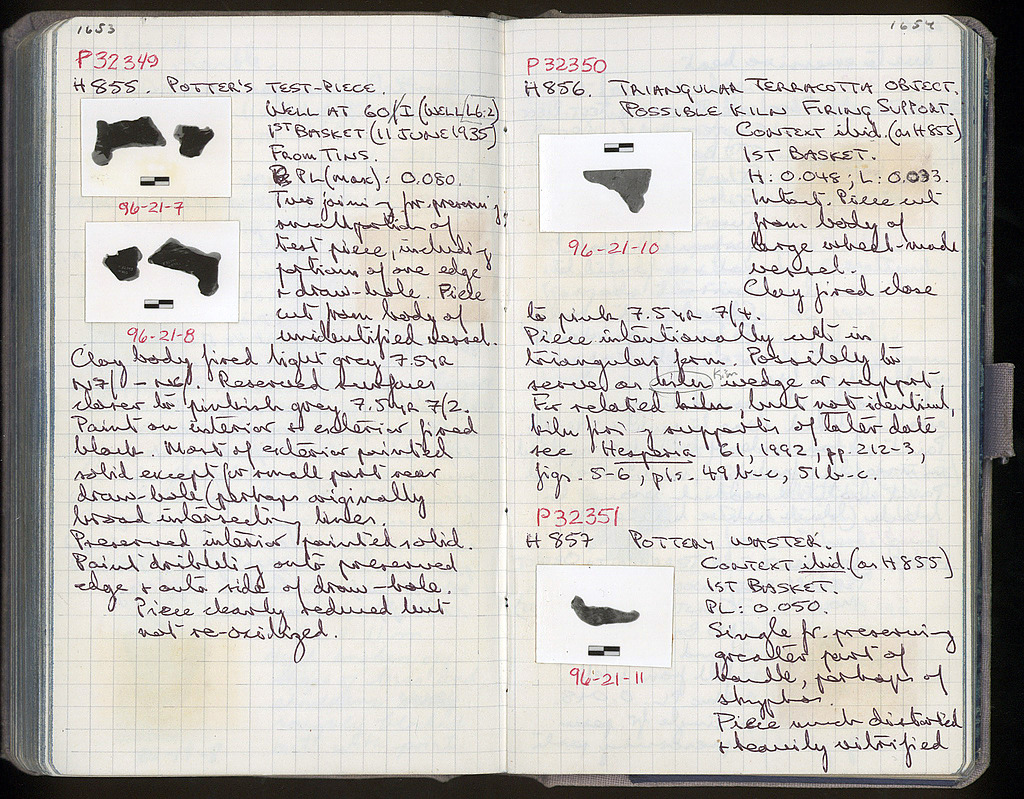 1653
P32349
H 855. POTTER'S TEST-PIECE.
WELL AT 60/I (WELL L6:2)
1ST BASKET (11 JUNE 1935)
FROM TINS.
PL (max): 0.080.
Two joining fr. preserving
small portion of
test piece, including
portions of one edge
+ draw-hole. Piece
cut from body of
unidentified vessel.
96-21-7
96-21-8
Clay body fired light grey 7.5YR
N7/ - N6/. Reserved surfaces
closer to pinkish grey 7.5YR 7/2.
Paint on interior + exterior fired
black. Most of exterior painted
solid except for small part near
draw-hole (perhaps originally
broad intersecting lines.
Preserved interior painted solid.
Paint dribbling onto preserved
edge + onto side of draw-hole.
Piece clearly reduced but
not re-oxidized.
1654
P32350
H 856. TRIANGULAR TERRACOTTA OBJECT.
POSSIBLE KILN FIRING SUPPORT.
CONTEXT ibid. (as H 855)
1ST BASKET.
H: 0.048; L: 0.033.
Intact. Piece cut
from body of
large wheel-made
vessel.
Clay fired close
96-21-10
to pink 7.5YR 7/4.
Piece intentionally cut in
triangular form. Possibly to
serve as kiln wedge or support.
For related kiln, but not identical,
kiln firing supports of later date
see Hesperia 61, 1992, pp. 212-3,
figs. 5-6, pls. 49b-c, 51b-c.
P32351
H 857 POTTERY WASTER.
CONTEXT ibid. (as H 855)
1ST BASKET.
PL: 0.050.
Single fr. preserving
greater part of
handle, perhaps of
skyphos.
Piece much distorted
+ heavily vitrified
96-21-11